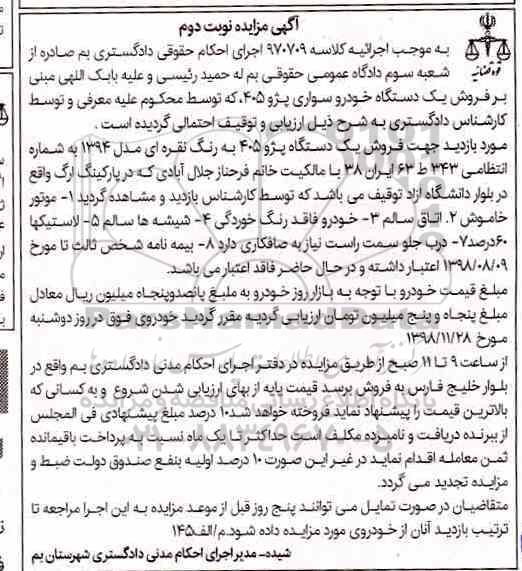 آگهی مزایده نوبت دوم
قوه قضائیه
به موجب اجرائیه کلاسه ۹۷۰۷۰۹ اجرای احکام حقوقی دادگستری بم صادره از
شعبه سوم دادگاه عمومی حقوقی بم له حمید رئیسی و علیه بابک اللهی مبنی
بر فروش یک دستگاه خودرو سواری پژو ۴۰۵، که توسط محکوم علیه معرفی و توسط
کارشناس دادگستری به شرح ذیل ارزیابی و توقیف احتمالی گردیده است .
مورد بازدید جهت فروش یک دستگاه پژو ۴۰۵ به رنگ نقره ای مدل ۱۳۹۴ به شماره
انتظامی ۳۴۳ ط ۶۳ ایران ۳۸ با مالکیت خانم فرحناز جلال آبادی که در پارکینگ ارگ واقع
در بلوار دانشگاه آزاد توقیف می باشد که توسط کارشناس بازدید و مشاهده گردید ۱- موتور
خاموش ۲. اتاق سالم ۳- خودرو فاقد رنگ خوردگی ۴- شیشه ها سالم ۵- لاستیکها
۶۰درصد۷- درب جلو سمت راست نیاز به صافکاری دارد ۸- بیمه نامه شخص ثالث تا مورخ
۱۳۹۸/۰۸/۰۹ اعتبار داشته و در حال حاضر فاقد اعتبار می باشد.
مبلغ قیمت خودرو با توجه به بازار روز خودرو به ملبغ پانصدوپنجاه میلیون ریال معادل
مبلغ پنجاه و پنج میلیون تومان ارزیابی گردیه مقرر گردید خودروی فوق در روز دوشنبه
مورخ ۱۳۹۸/۱۱/۲۸
از ساعت ۹ تا ۱۱ صبح از طریق مزایده در دفتر اجرای احکام مدنی دادگستری بم واقع در
بلوار خلیج فارس به فروش برسد قیمت پایه از بهای ارزیابی شدن شروع و به کسانی که
بالاترین قیمت را پیشنهاد نماید فروخته خواهد شد۱۰ درصد مبلغ پیشنهادی فی المجلس
از ببرنده دریافت و نامبرده مکلف است حداکثر تا یک ماه نسبت به پرداخت باقیمانده
ثمن معامله اقدام نماید در غیر این صورت ۱۰ درصد اولیه بنفع صندوق دولت ضبط و
مزایده تجدید می گردد.
متقاضیان در صورت تمایل می توانند پنج روز قبل از موعد مزایده به این اجرا مراجعه تا
ترتیب بازدید آنان از خودروی مورد مزایده داده شود.م/الف۱۴۵
شیده- مدیر اجرای احکام مدنی دادگستری شهرستان بم